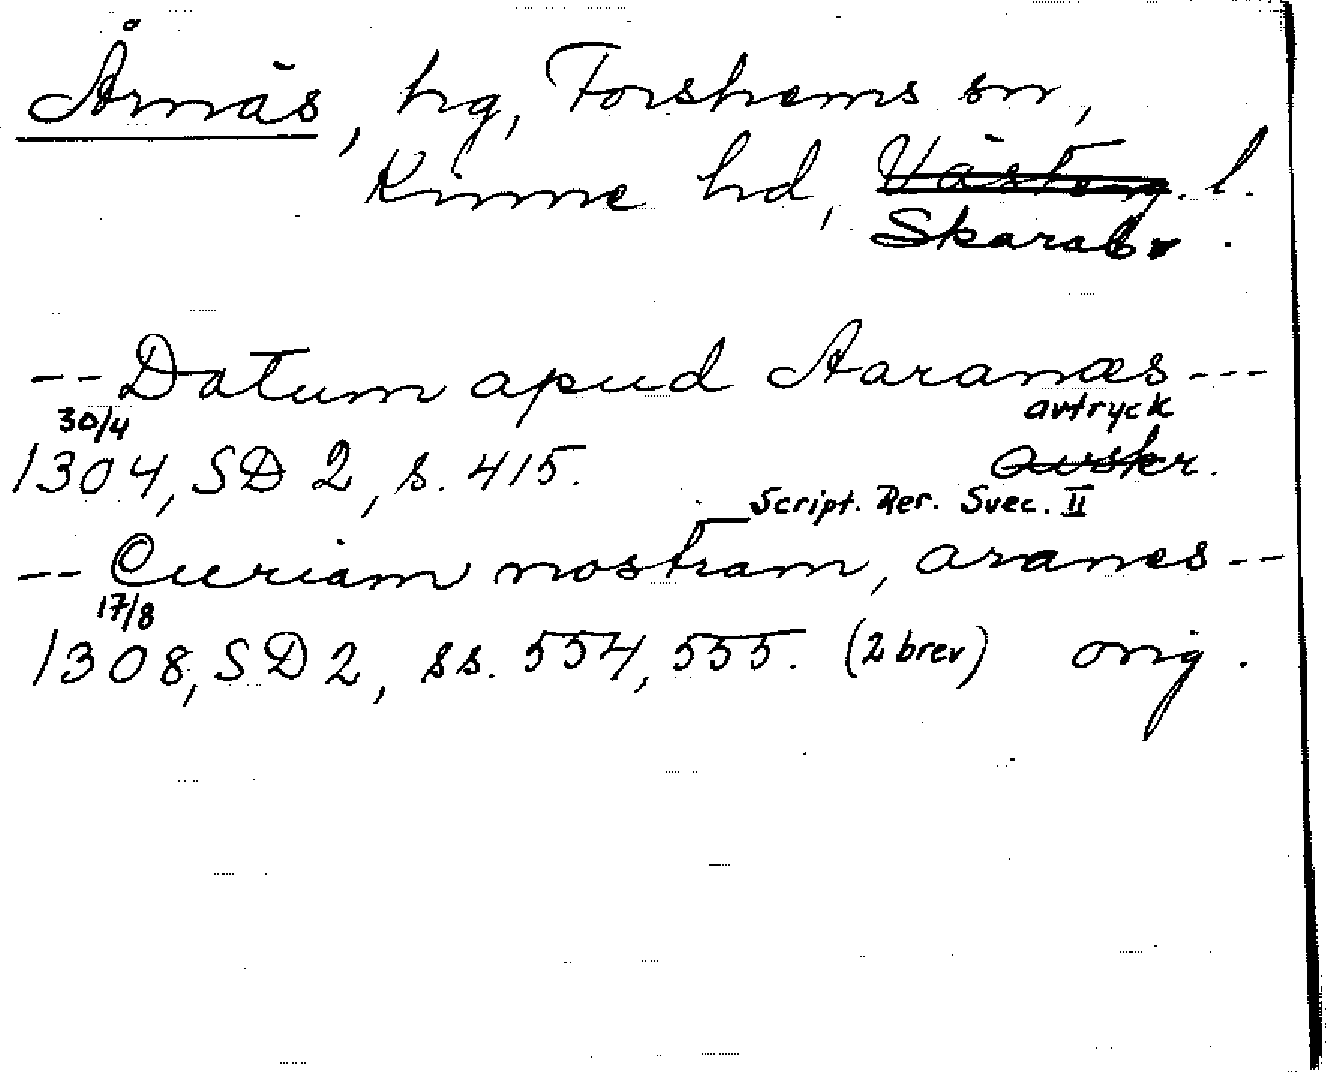 Årnäs, hg, Forshems sn,
Kinne hd, Västerg. l.
Skarab.
-- Datum apud Aaranæs ---
avtryck
30/4
1304, SD 2, s. 415. avskr.
Script. Rer. Svec. II
-- Curiam nostram, aranes --
17/8
1308, SD 2, ss. 554, 555. (2 brev) orig.